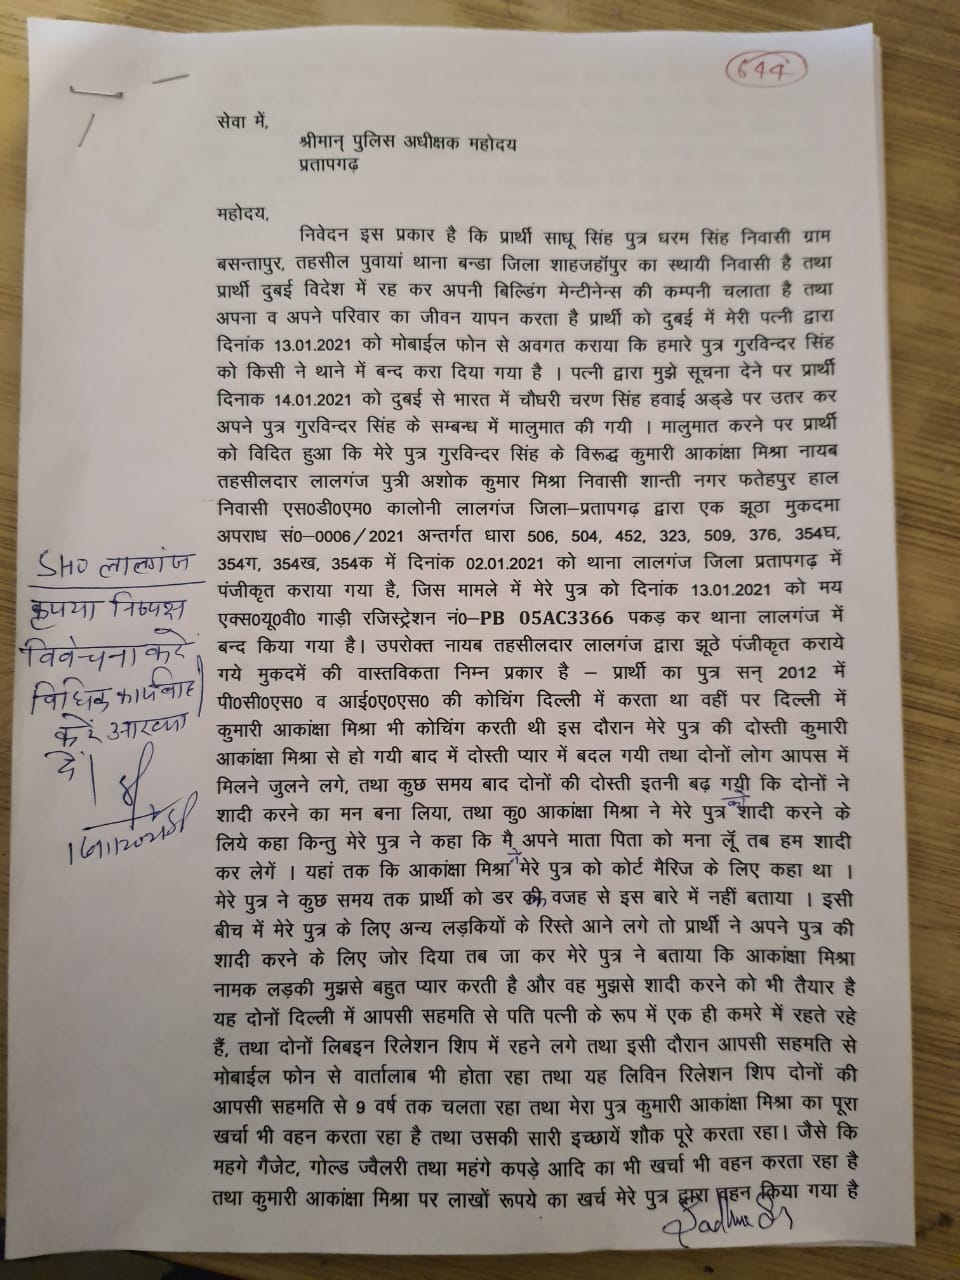 644
सेवा में,
श्रीमान् पुलिस अधीक्षक महोदय
प्रतापगढ़
महोदय,
निवेदन इस प्रकार है कि प्रार्थी साधू सिंह पुत्र धरम सिंह निवासी ग्राम
बसन्तापुर, तहसील पुवायां थाना बन्डा जिला शाहजहॉपुर का स्थायी निवासी है तथा
प्रार्थी दुबई विदेश में रह कर अपनी बिल्डिंग मेन्टीनेन्स की कम्पनी चलाता है तथा
अपना व अपने परिवार का जीवन यापन करता है प्रार्थी को दुबई में मेरी पत्नी द्वारा
दिनांक 13.01.2021 को मोबाईल फोन से अवगत कराया कि हमारे पुत्र गुरविन्दर सिंह
को किसी ने थाने में बन्द करा दिया गया है । पत्नी द्वारा मुझे सूचना देने पर प्रार्थी
दिनाक 14.01.2021 को दुबई से भारत में चौधरी चरण सिंह हवाई अड्डे पर उतर कर
अपने पुत्र गुरविन्दर सिंह के सम्बन्ध में मालुमात की गयी । मालुमात करने पर प्रार्थी
को विदित हुआ कि मेरे पुत्र गुरविन्दर सिंह के विरूद्ध कुमारी आकांक्षा मिश्रा नायब
तहसीलदार लालगंज पुत्री अशोक कुमार मिश्रा निवासी शान्ती नगर फतेहपुर हाल
निवासी एस0डी0एम0 कालोनी लालगंज जिला–प्रतापगढ़ द्वारा एक झूठा मुकदमा
अपराध सं0–0006/2021 अन्तर्गत धारा 506, 504, 452, 323, 509, 376, 354घ,
354ग, 354ख, 354क में दिनांक 02.01.2021 को थाना लालगंज जिला प्रतापगढ़ में
पंजीकृत कराया गया है, जिस मामले में मेरे पुत्र को दिनांक 13.01.2021 को मय
एक्स0यू0वी0 गाड़ी रजिस्ट्रेशन नं0–PB 05AC3366 पकड़ कर थाना लालगंज में
बन्द किया गया है। उपरोक्त नायब तहसीलदार लालगंज द्वारा झूठे पंजीकृत कराये
गये मुकदमें की वास्तविकता निम्न प्रकार है – प्रार्थी का पुत्र सन् 2012 में
पी0सी0एस0 व आई0ए0एस0 की कोचिंग दिल्ली में करता था वहीं पर दिल्ली में
कुमारी आकांक्षा मिश्रा भी कोचिंग करती थी इस दौरान मेरे पुत्र की दोस्ती कुमारी
आकांक्षा मिश्रा से हो गयी बाद में दोस्ती प्यार में बदल गयी तथा दोनों लोग आपस में
मिलने जुलने लगे, तथा कुछ समय बाद दोनों की दोस्ती इतनी बढ़ गयी कि दोनों ने
शादी करने का मन बना लिया, तथा कु0 आकांक्षा मिश्रा ने मेरे पुत्र को शादी करने के
लिये कहा किन्तु मेरे पुत्र ने कहा कि मै अपने माता पिता को मना लूॅ तब हम शादी
कर लेगें । यहां तक कि आकांक्षा मिश्रा ने मेरे पुत्र को कोर्ट मैरिज के लिए कहा था ।
मेरे पुत्र ने कुछ समय तक प्रार्थी को डर की वजह से इस बारे में नहीं बताया । इसी
बीच में मेरे पुत्र के लिए अन्य लड़कियों के रिस्ते आने लगे तो प्रार्थी ने अपने पुत्र की
शादी करने के लिए जोर दिया तब जा कर मेरे पुत्र ने बताया कि आकांक्षा मिश्रा
नामक लड़की मुझसे बहुत प्यार करती है और वह मुझसे शादी करने को भी तैयार है
यह दोनों दिल्ली में आपसी सहमति से पति पत्नी के रूप में एक ही कमरे में रहते रहे
हैं, तथा दोनों लिबइन रिलेशन शिप में रहने लगे तथा इसी दौरान आपसी सहमति से
मोबाईल फोन से वार्तालाब भी होता रहा तथा यह लिविन रिलेशन शिप दोनों की
आपसी सहमति से 9 वर्ष तक चलता रहा तथा मेरा पुत्र कुमारी आकांक्षा मिश्रा का पूरा
खर्चा भी वहन करता रहा है तथा उसकी सारी इच्छायें शौक पूरे करता रहा। जैसे कि
महगे गैजेट, गोल्ड ज्वैलरी तथा महंगे कपड़े आदि का भी खर्चा भी वहन करता रहा है
तथा कुमारी आकांक्षा मिश्रा पर लाखों रूपये का खर्च मेरे पुत्र द्वारा वहन किया गया है
SHO लालगंज
कृपया निष्पक्ष
विवेचना करें
विधिक कार्यवाही
करें आख्या
दें।